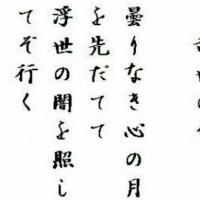 曇りなき心の月
を先だてて
浮世の闇を照し
てぞ行く